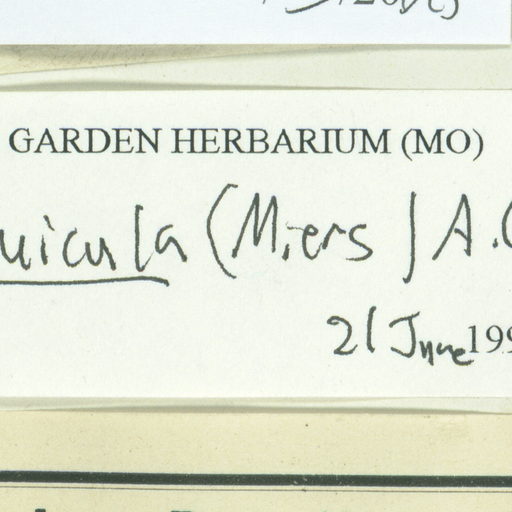 GARDEN HERBARIUM (MO)
uicula (Miers) A.
21 June 199